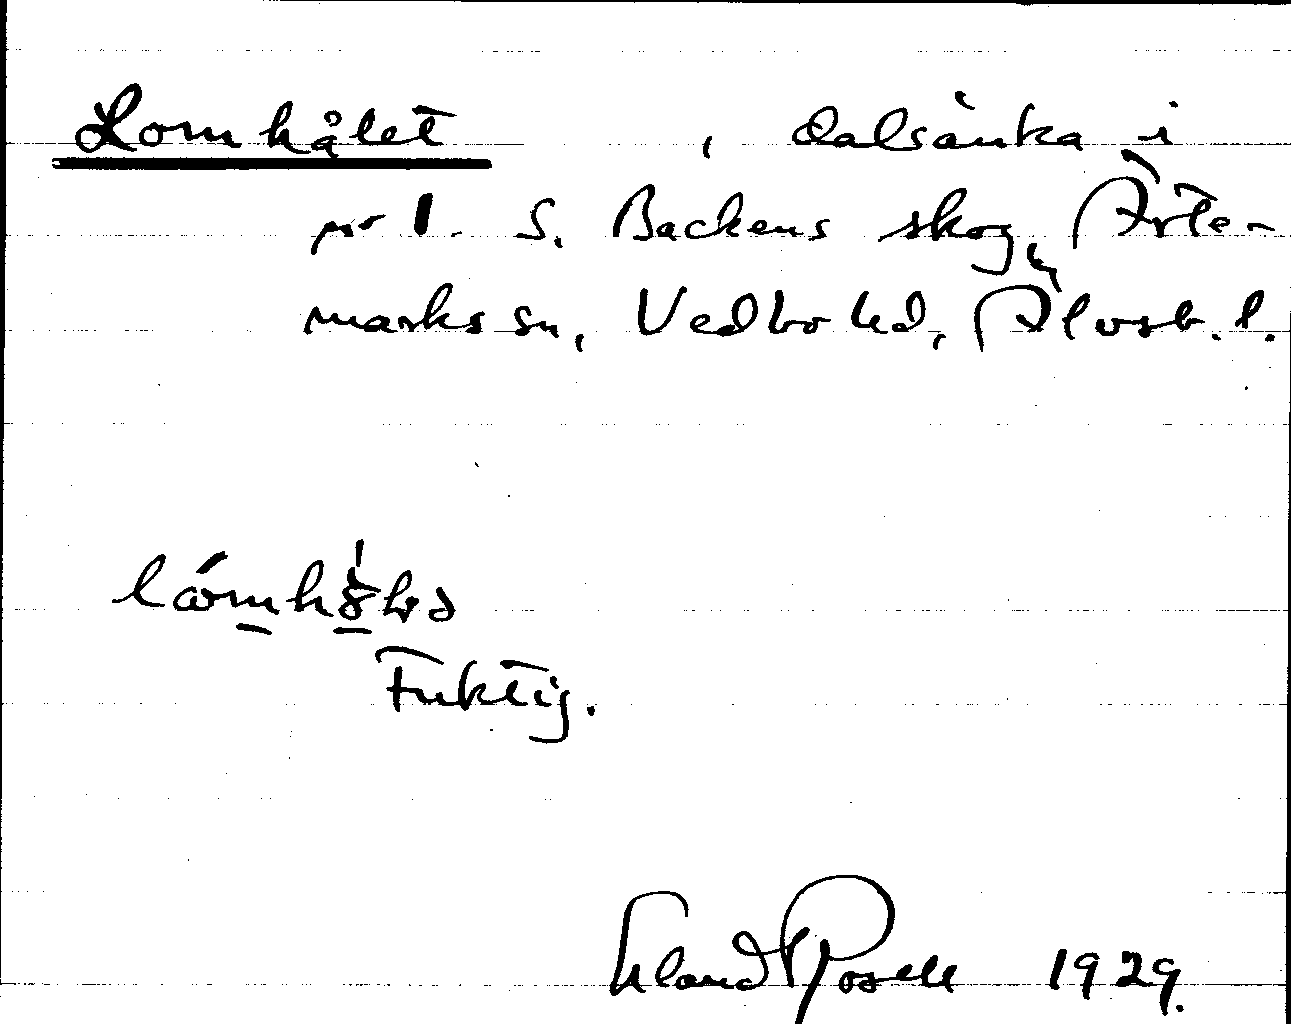 Lomhålet , dalsänka i
på 1. S. Backens skog, Ärte-
marks sn, Vedbo hd, Älvsb. l.
Fuktig.
Erland Rosell 1929.